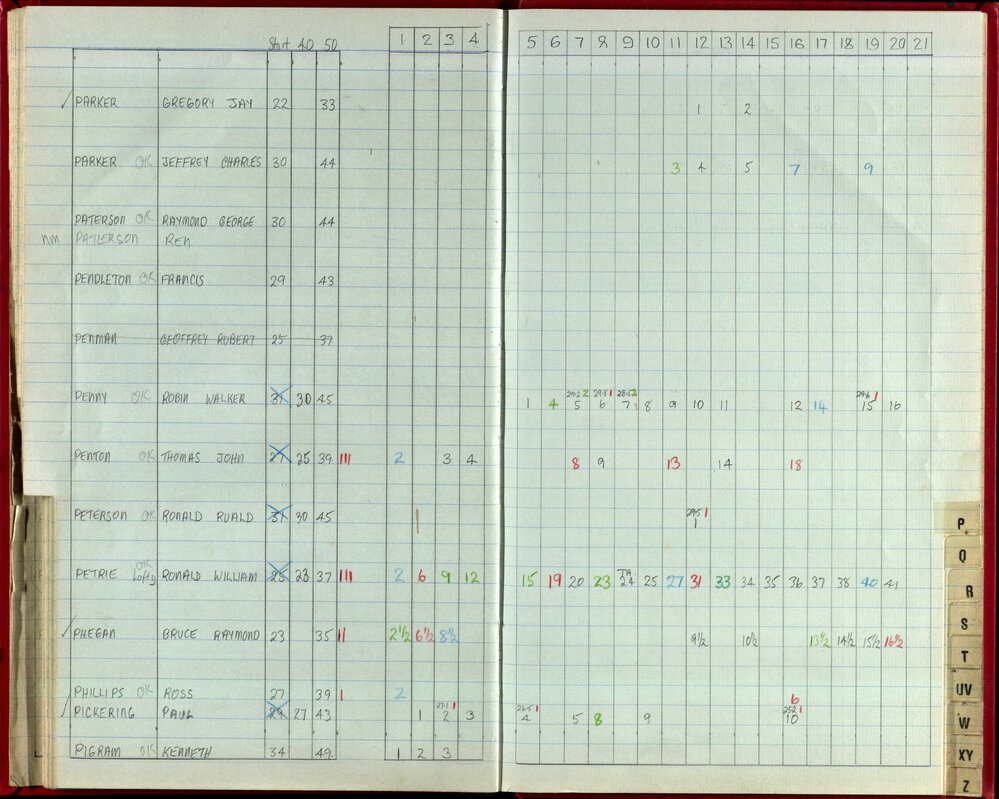 Start 40 50 1 2 3 4 5 6 7 8 9 10 11 12 13 14 15 16 17 18 19 20 21
PARKER GREGORY JAY 22 33 1 2
PARKER OK JEFFREY CHARLES 30 44 3 4 5 7 9
PATERSON OK RAYMOND GEORGE 30 44
NM PATTERSON Ren
PENDLETON OK FRANCIS 29 43
PENMAN GEOFFREY ROBERT 25 37
29·2 2 29·8 1 28·5 2 29·6 1
PENNY OK ROBIN WALKER 31 30 45 1 4 5 6 7 8 9 10 11 12 14 15 16
PENTON OK THOMAS JOHN 27 25 39 III 2 3 4 8 9 13 14 18
29·5 1
PETERSON OK RONALD RUALD 31 30 45 1
OK T.A.
PETRIE Lofty RONALD WILLIAM 25 23 37 III 2 6 9 12 15 19 20 23 24 25 27 31 33 34 35 36 37 38 40 41
PHEGAN BRUCE RAYMOND 23 35 II 2½ 6½ 8½ 9½ 10½ 13½ 14½ 15½ 16½
PHILLIPS OK ROSS 27 39 1 2 6
27·1 1 26·5 1 25·2 1
PICKERING PAUL 29 27 43 1 2 3 4 5 8 9 10
PIGRAM OK KENNETH 34 49 1 2 3
P
Q
R
S
T
UV
W
XY
Z